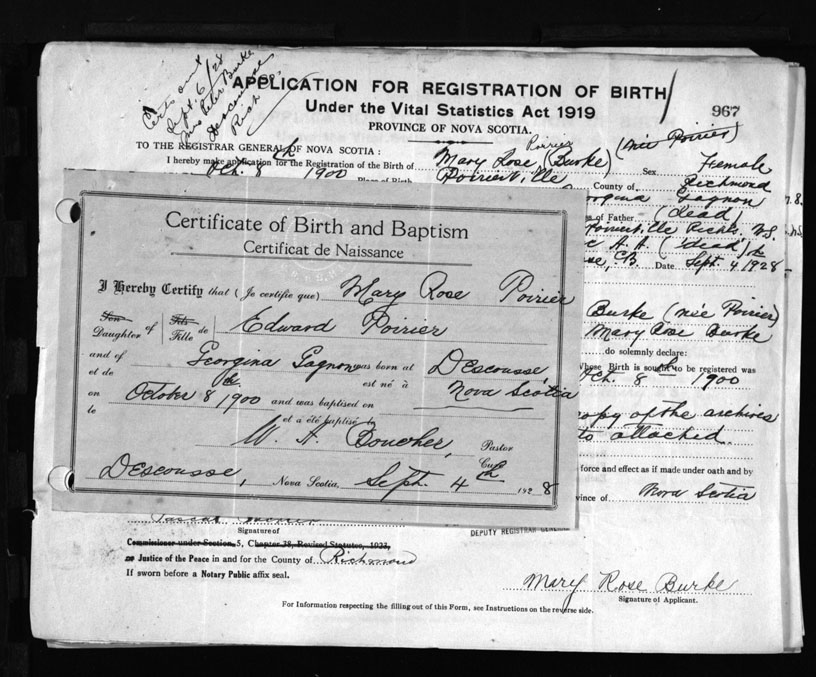 Certs out
Sept. 6/28
Mrs Peter Burke
Descousse
Rich. Co.
APPLICATION FOR REGISTRATION OF BIRTH
967
Under the Vital Statistics Act 1919
PROVINCE OF NOVA SCOTIA.
TO THE REGISTRAR GENERAL OF NOVA SCOTIA:
Poirier
I hereby make application for the Registration of the Birth of Mary Rose (Burke) (née Poirier) Sex Female
Oct. 8th 1900 Place of Birth Poirierville County of Richmond
Georgina Gagnon
of Father (dead)
Poirierville Richl. N.S.
(dead)
C.B. Date Sept. 4 1928
Certificate of Birth and Baptism
Certificat de Naissance
I Hereby Certify that (Je certifie que) Mary Rose Poirier
Son Fils
Daughter of Fille de Edward Poirier
and of Georgina Gagnon was born at Descousse,
et de est né à Nova Scotia
on October 8th 1900 and was baptised on
le et a été baptisé le
W. A. Boucher, Pastor
Curé
Descousse, Nova Scotia, Sept. 4th 1928
Burke (née Poirier)
Mary Rose Burke
do solemnly declare:
Whose Birth is sought to be registered was
Oct. 8th 1900
copy of the archives
attached.
force and effect as if made under oath and by
Province of Nova Scotia
DEPUTY REGISTRAR GENERAL
Signature of
Commissioner under Section 5, Chapter 38, Revised Statutes, 1923,
or Justice of the Peace in and for the County of Richmond
If sworn before a Notary Public affix seal.
Mary Rose Burke
Signature of Applicant.
For Information respecting the filling out of this Form, see Instructions on the reverse side.